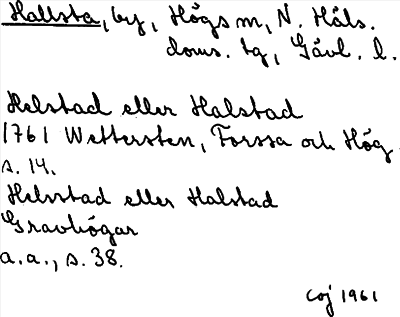 Hallsta, by, Högs m, N. Häls.
doms. tg, Gävl. l.
Helstad eller Halstad
1761 Wettersten, Forssa och Hög
s. 14.
Helstad eller Halstad
Gravhögar
a.a., s. 38.
Coj 1961